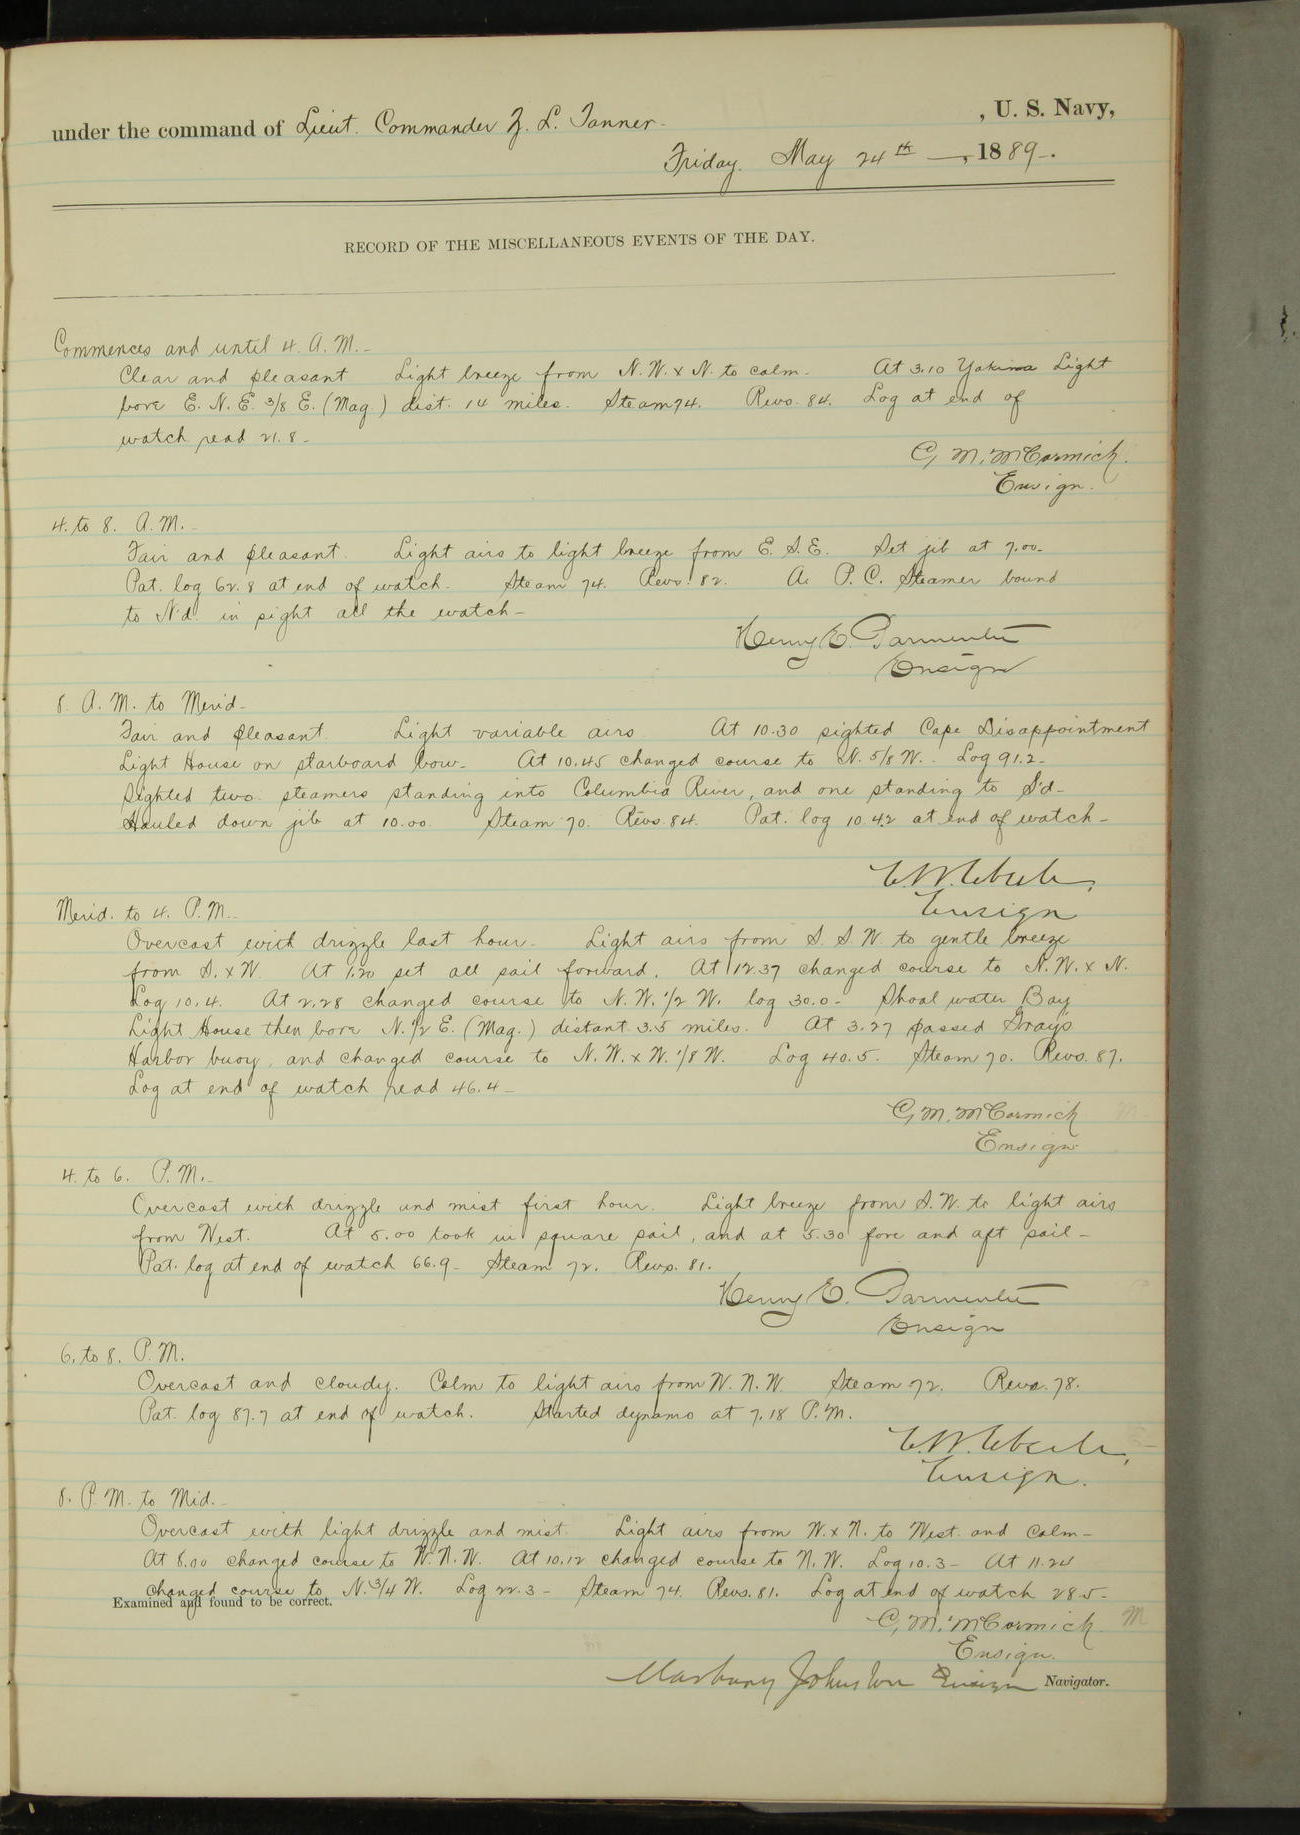 under the command of Lieut. Commander Z. L. Tanner , U. S. Navy,
Friday. May 24th , 1889.
RECORD OF THE MISCELLANEOUS EVENTS OF THE DAY.
Commences and until 4. A. M.
Clear and pleasant Light breeze from N. W. x N. to calm. At 3.10 Yakima Light
bore E. N. E. 3/8 E. (Mag.) dist. 14 miles. Steam 74. Revs. 84. Log at end of
watch read 21.8
C, M. McCormick.
Ensign.
4. to 8. A. M.
Fair and pleasant. Light airs to light breeze from E. S. E. Set jib at 7.00.
Pat. log 62.8 at end of watch. Steam 74. Revs. 82. A P. C. Steamer bound
to N'd. in sight all the watch
Henry E. Parmenter
Ensign
8. A. M. to Merid.
Fair and pleasant Light variable airs At 10.30 sighted Cape Disappointment
Light House on starboard bow. At 10.45 changed course to N. 5/8 W. Log 91.2
Sighted two steamers standing into Columbia River, and one standing to S'd
Hauled down jib at 10.00. Steam 70. Revs. 84. Pat. log 104.2 at end of watch
E. W. Eberle,
Ensign
Merid. to 4. P. M.
Overcast with drizzle last hour. Light airs from S. S. W. to gentle breeze
from S. x W. At 1.20 set all sail forward. At 12.37 changed course to N. W. x N.
Log 10.4. At 2.28 changed course to N. W. 1/2 W. log 30.0 Shoal water Bay
Light House then bore N. 1/2 E. (Mag.) distant 3.5 miles. At 3.27 passed Gray's
Harbor buoy, and changed course to N. W. x W. 1/8 W. Log 40.5. Steam 70. Revs. 87.
Log at end of watch read 46.4
C, M. McCormick
Ensign
4. to 6. P. M.
Overcast with drizzle and mist first hour. Light breeze from S. W. to light airs
from West. At 5.00 took in square sail, and at 5.30 fore and aft sail
Pat. log at end of watch 66.9 Steam 72. Revs. 81.
Henry E. Parmenter
Ensign
6. to 8. P. M.
Overcast and cloudy. Calm to light airs from W. N. W. Steam 72. Revs. 78.
Pat. log 87.7 at end of watch. Started dynamo at 7.18 P. M.
E. W. Eberle,
Ensign.
8. P. M. to Mid.
Overcast with light drizzle and mist Light airs from W. x N. to West and Calm
At 8.00 changed course to W. N. W. At 10.12 changed course to N. W. Log 10.3 At 11.24
changed course to N. 3/4 W. Log 22.3 Steam 74. Revs. 81. Log at end of watch 28.5
Examined and found to be correct.
C, M. McCormick
Ensign.
Marbury Johnston Ensign Navigator.